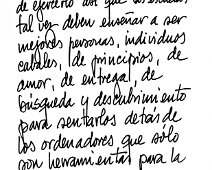 de ejercerlo así que las escuelas,
tal vez deben enseñar a ser
mejores personas, individuos
cabales, de principios, de
amor, de entrega, de
búsqueda y descubrimiento
para sentarlos detrás de
los ordenadores que sólo
son herramientas para la